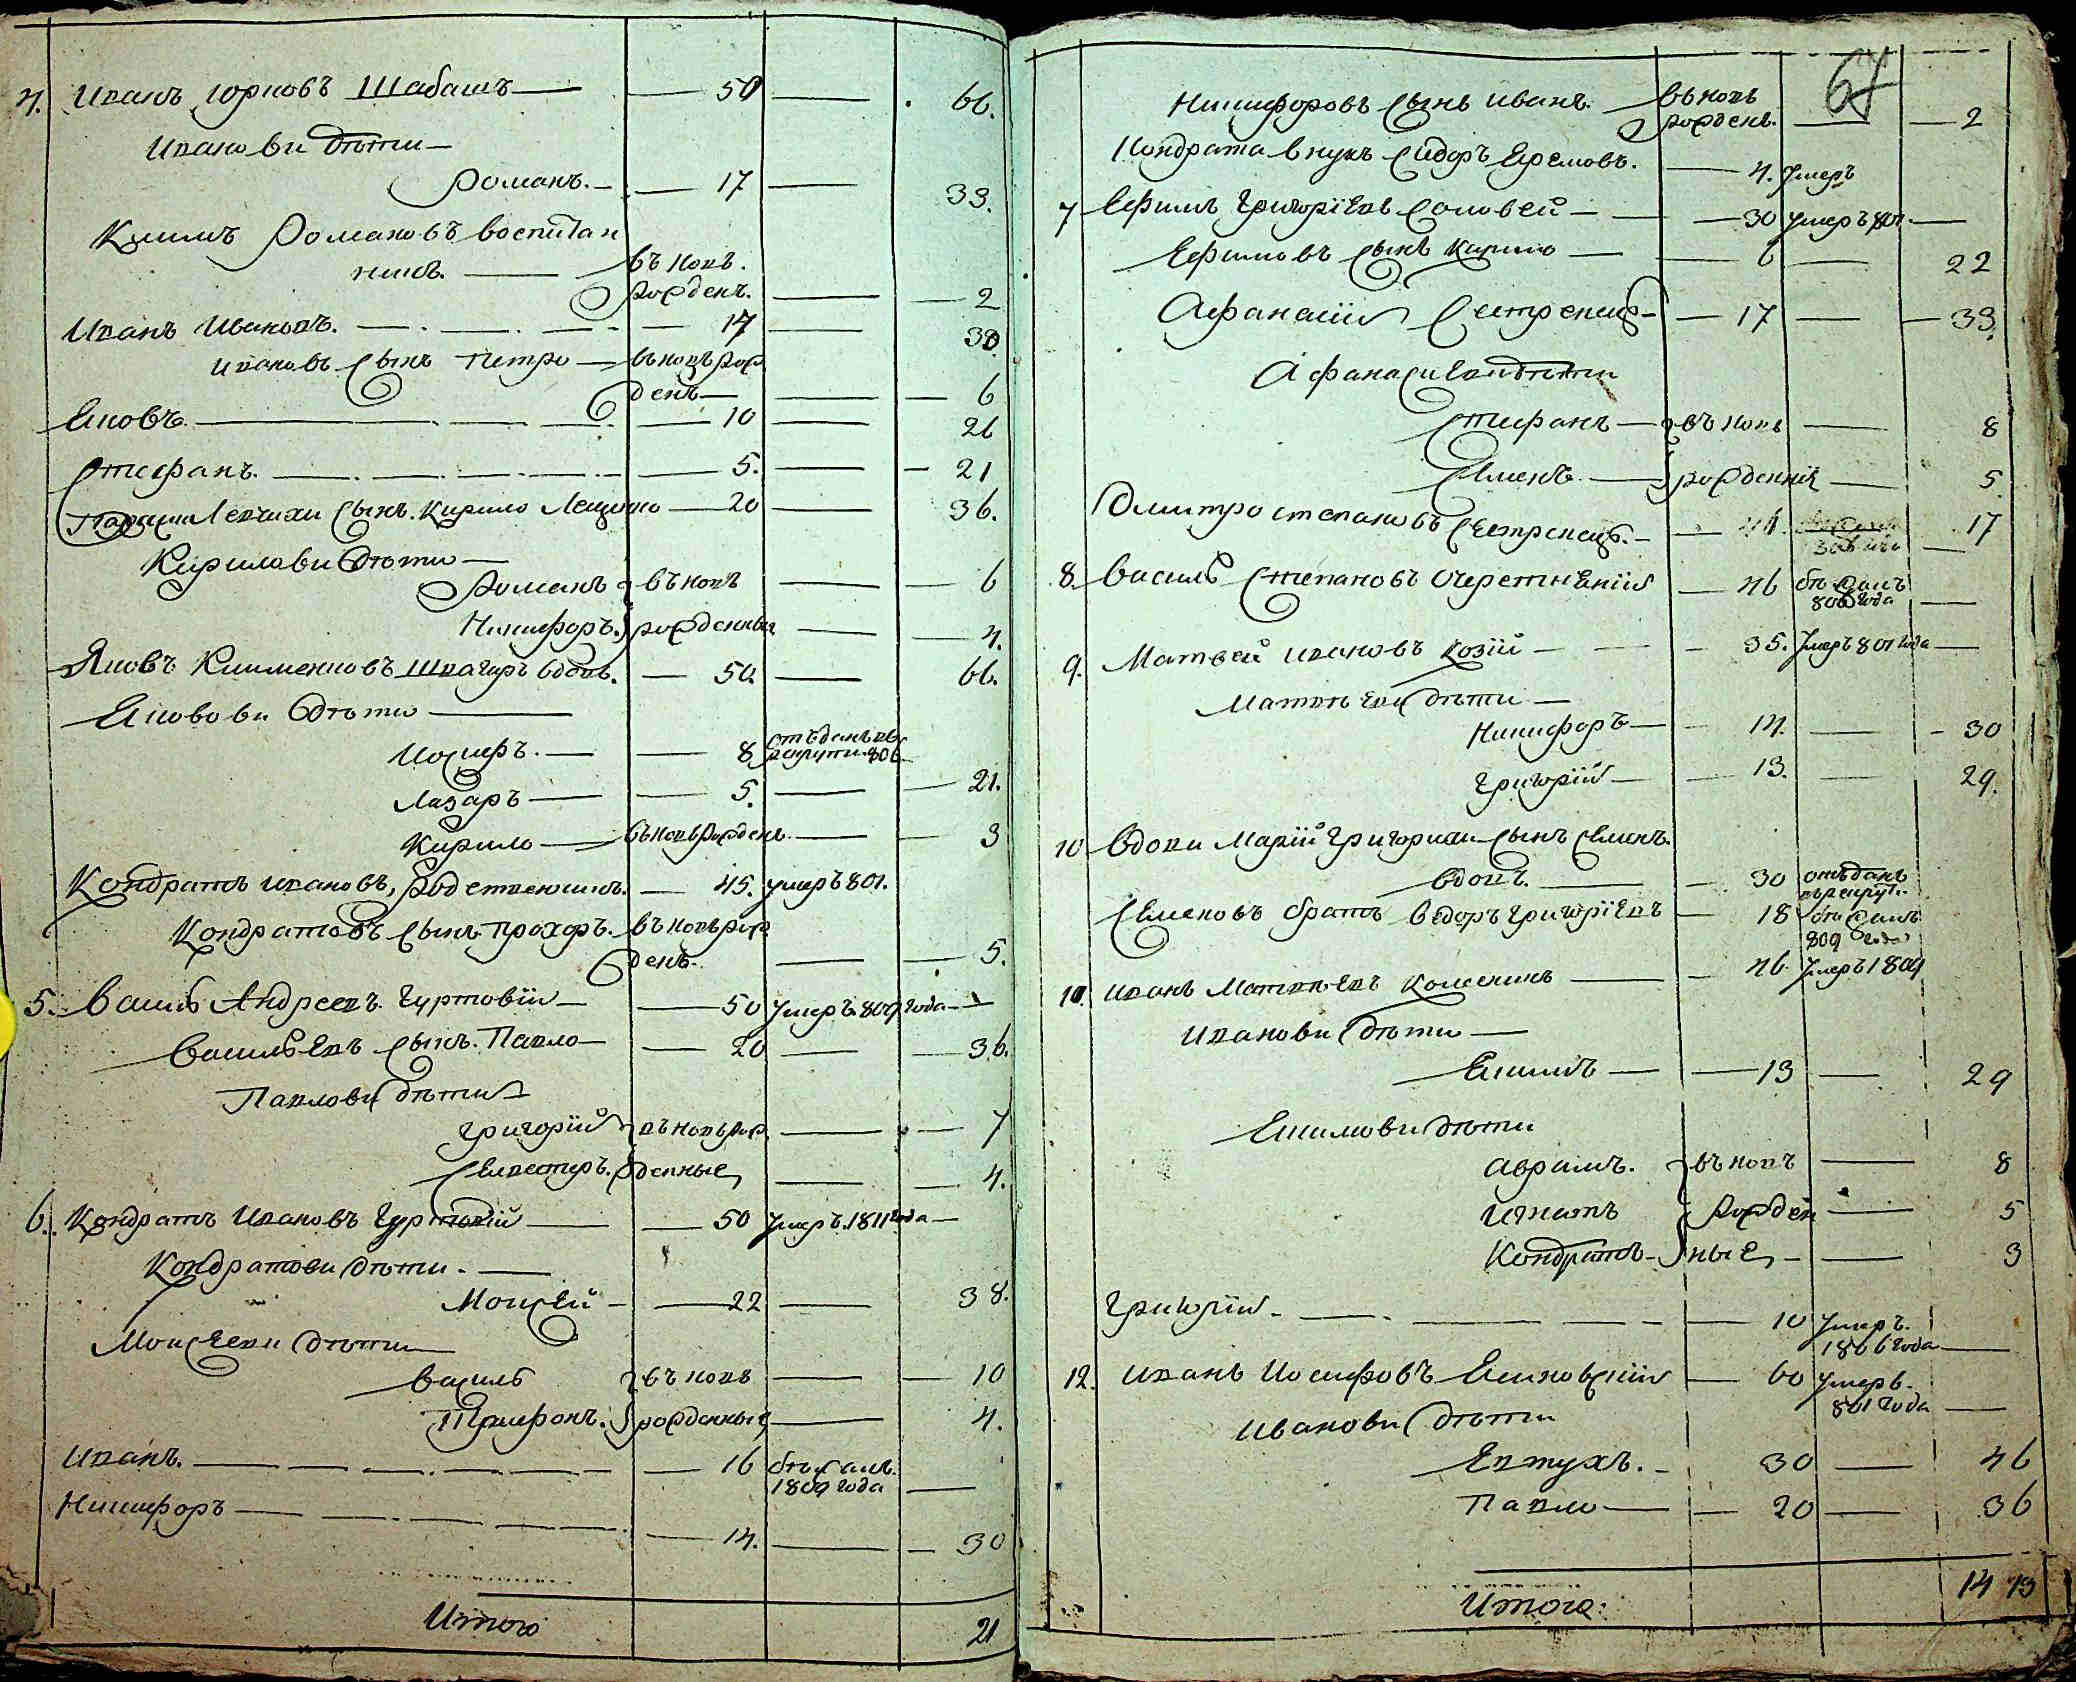 4. Иванъ Юрковъ Шабашъ 50 66.
Иванови дѣти
Романъ. 17 33.
Климъ Романовъ воспитан
никъ. въ новѣ.
рожденъ. 2
Иванъ Ивановъ. 17 33
Ивановъ сынъ Петро въ новѣ рож
денъ 6
Яковъ. 10 26
Стефанъ. 5. 21
сынъ. Кирило 20 36.
Кирилови дѣти
Романъ въ новѣ 6
Никифоръ. рожденныя 4.
Яковъ Клименковъ Швагеръ вдовъ. 50. 66.
Якови дѣти
Иосифъ. 8 отъданъ въ
рекрути 806
Лазаръ 5. 21.
Кирило въ новѣ рожденъ 3
Кондратъ Ивановъ, родственникъ. 45. умеръ 801.
Кондратовъ сынъ Прохоръ. въ новѣ рож
денъ. 5.
5. Василь Андреевъ Гуртовїй 50 умеръ 809 года
Васильевъ сынъ. Павло 20 36.
Павлови дѣти
Григорїй въ новѣ рож 7
Селвестеръ. денные 4.
6. Кондратъ Ивановъ Гуртовїй 50 умеръ. 1811 года
Кондратови дѣти.
Моисей 22 38.
Моисееви дѣти
Василь въ новѣ 10
Трифонъ. рожденныя 4.
Иванъ. 16 бѣжалъ.
1809 года
Никифоръ 14. 30
Итого 21
67
Никифоровъ сынъ Иванъ. въ новѣ
рожденъ. 2
Кондрата внукъ Сидоръ Еремовъ. 4. умеръ
7 Ефимъ Григорїевъ Соловей 30 умеръ 801.
Ефимовъ сынъ Кирило 6 22
Афанасїй Сестренецъ 17 33.
Афанасиеви дѣти
Стефанъ въ новѣ 8
Семенъ рожденнїя 5.
Дмитро Степановъ Сестренецъ. 17
8. Василь Степановъ Очеретнянїй 46 бѣжалъ
806 года
9. Матвей Ивановъ Козїй 35. умеръ 801 года
Матвѣеви дѣти
Никифоръ 14. 30
Григорїй 13. 29.
10 Вдови Марїй Григорихи сынъ Семенъ.
вдовъ. 30 отъданъ
въ рекрут.
Семеновъ братъ Ѳедоръ Григорїевъ 18 бѣжалъ
809 года
11. Иванъ Матвѣевъ 46. умеръ 1809
Иванови дѣти
Екимъ 13 29
Екимови дѣти
Аврамъ. въ новѣ 8
Игнатъ рожден 5
Кондратъ ные 3
Григорїй. 10 умеръ.
1806 года
12. Иванъ Иосифовъ Яниовскїй 60 умеръ.
801 года
Иванови дѣти
Евтухъ. 30 46
Павло 20 36
Итого: 14 13